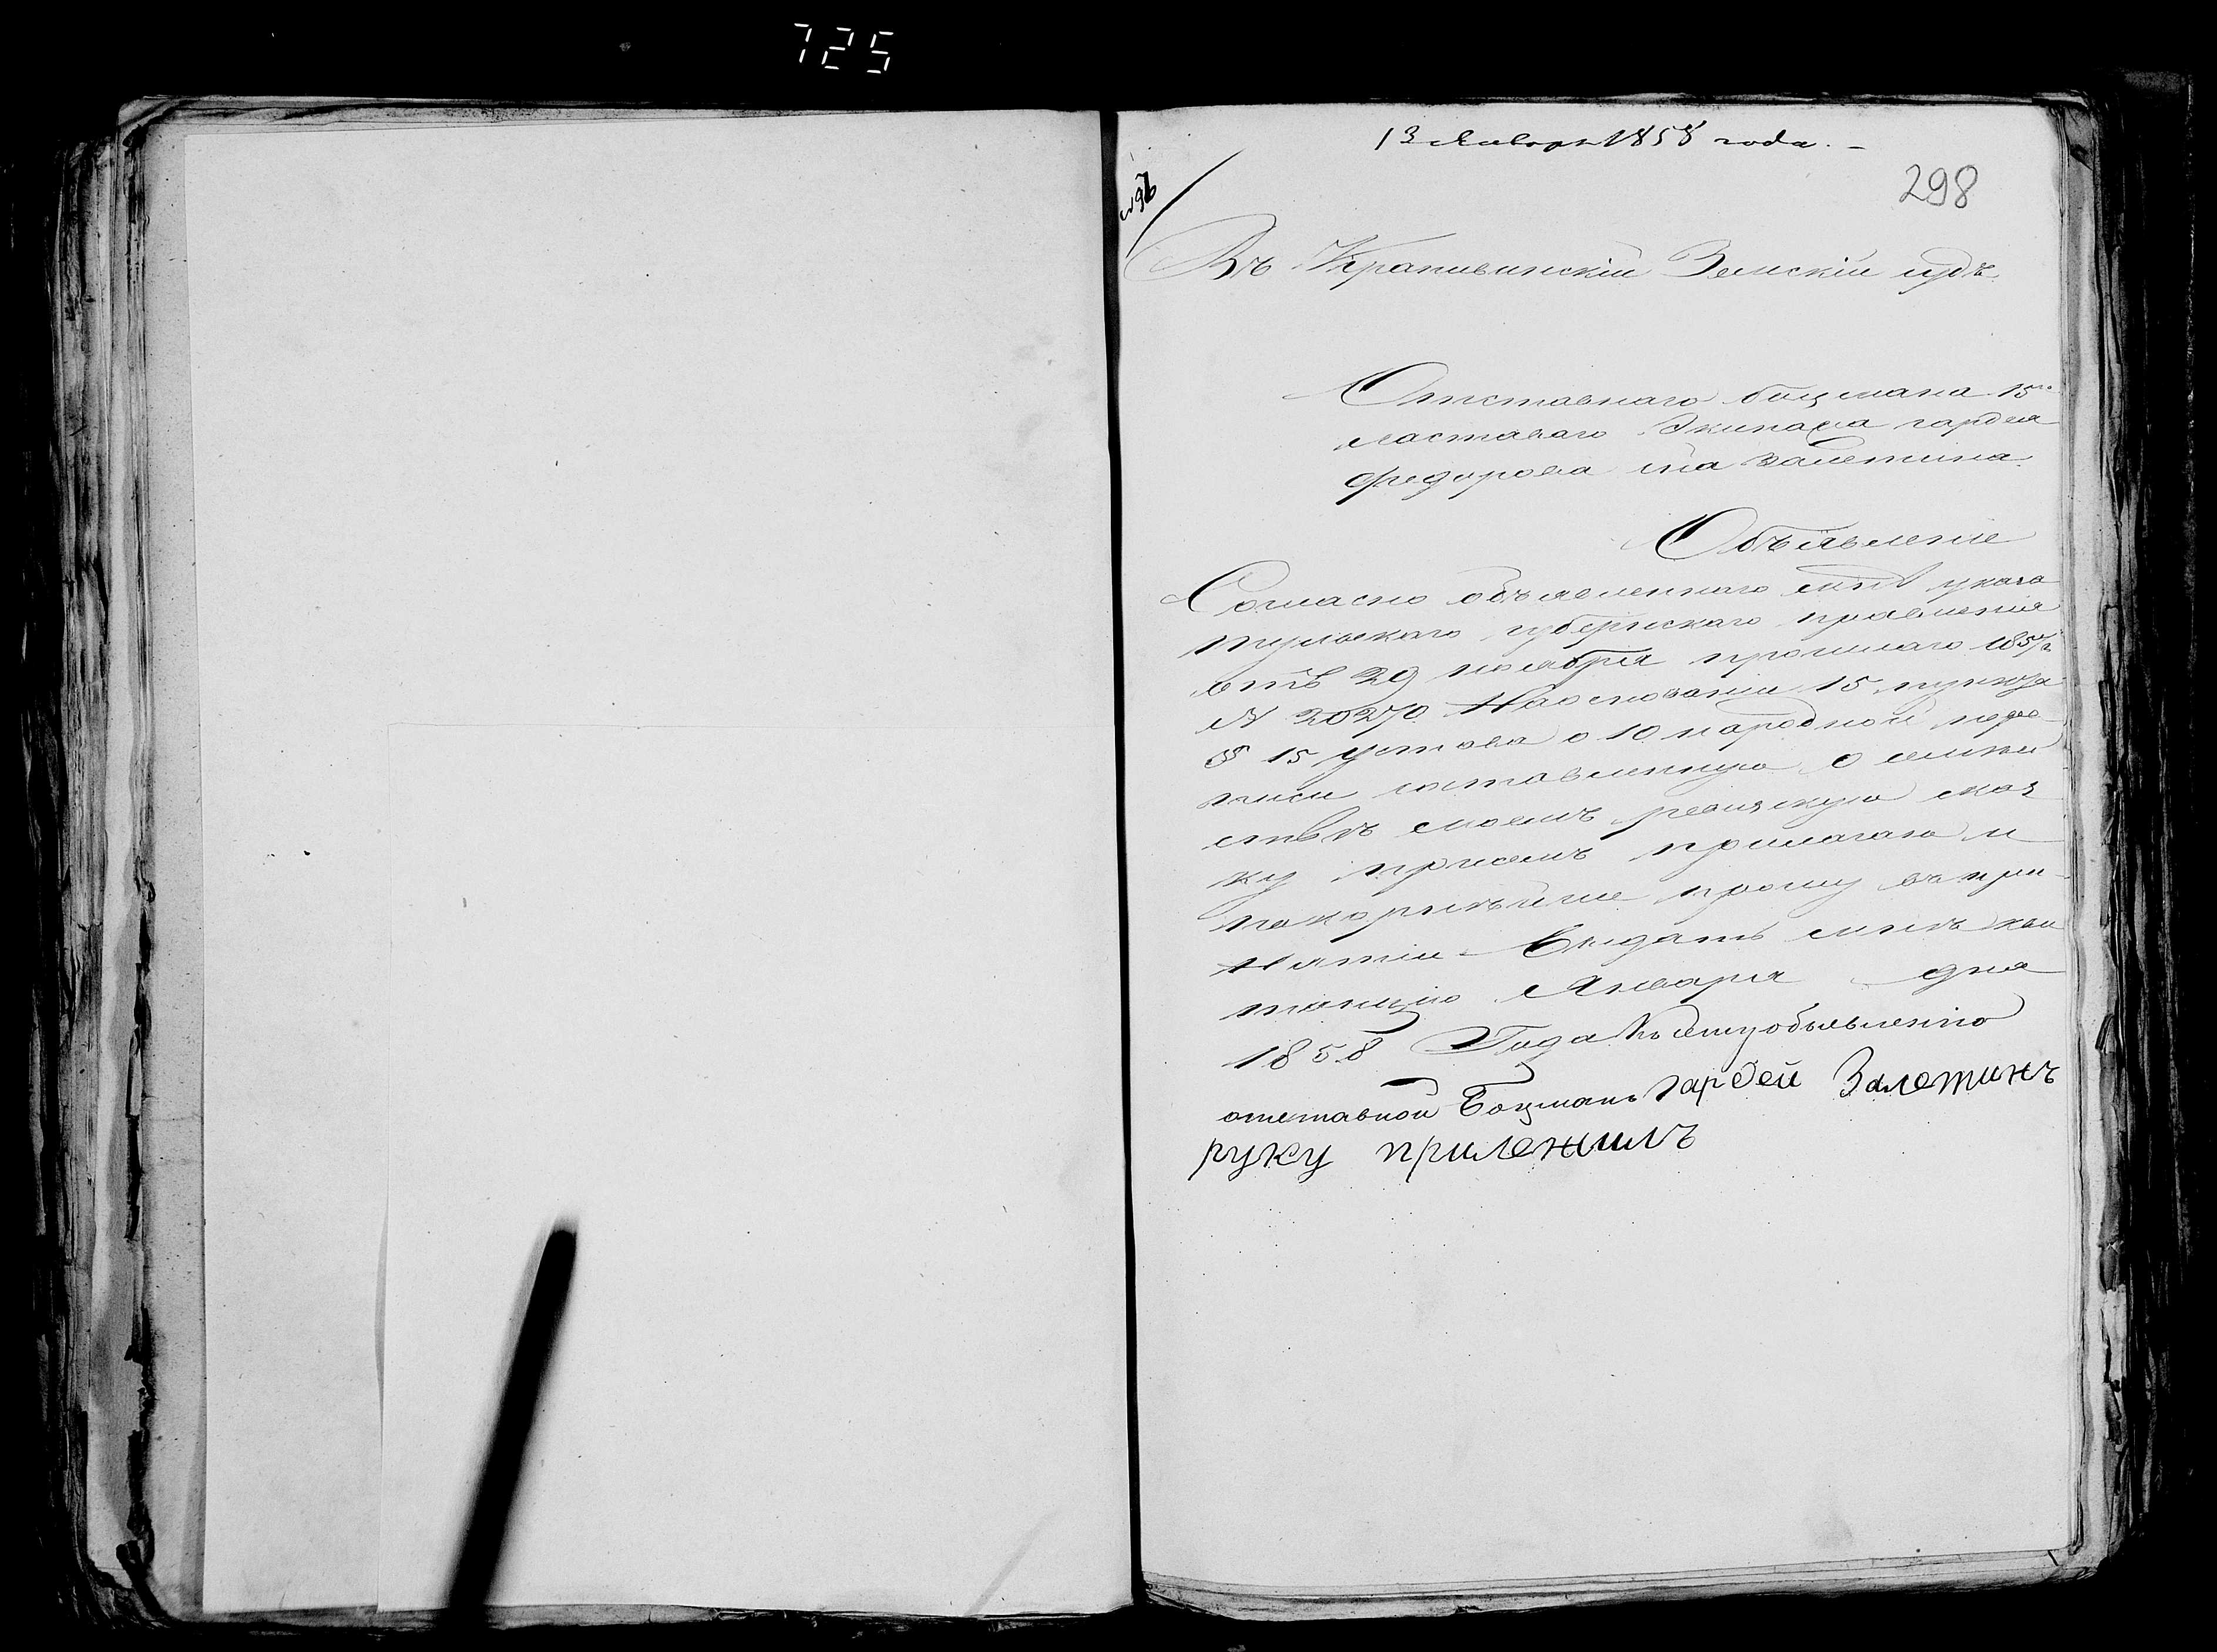 725
13 Января 1858 года. –
298
Въ Крапивинскій Земскій судъ
Отставнаго боцмана 15го
ластоваго Экипажа гардея
федорова сына залетина.
Объявленіе
Согласно объявленнаго мнѣ указа
тульскаго губернскаго правленія
отъ 29 ноября прошлаго 1857 г.
№ 20270 На основаніи 15 пункта
§ 15 устава о 10 народной пере-
писи составленную о семѣй
ствѣ моемъ ревизскую сказ
ку присемъ прилагаю и
покорнѣйше прошу въ при-
нятіи выдать мнѣ кви
танцію Января дня
1858 Года Къ сему объевленію
отставной Боцманъ гардей Залетинъ
руку приложилъ